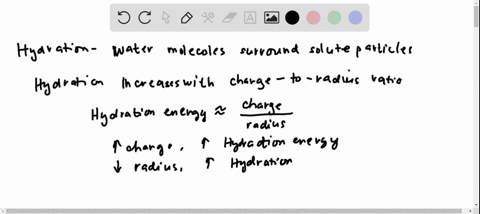 Hydration - Water molecoles surround solute particles
Hydration Increases with charge - to - radius ratio
Hydration energy ≈ charge / radius
↑ charge, ↑ Hydration energy
↓ radius, ↑ Hydration